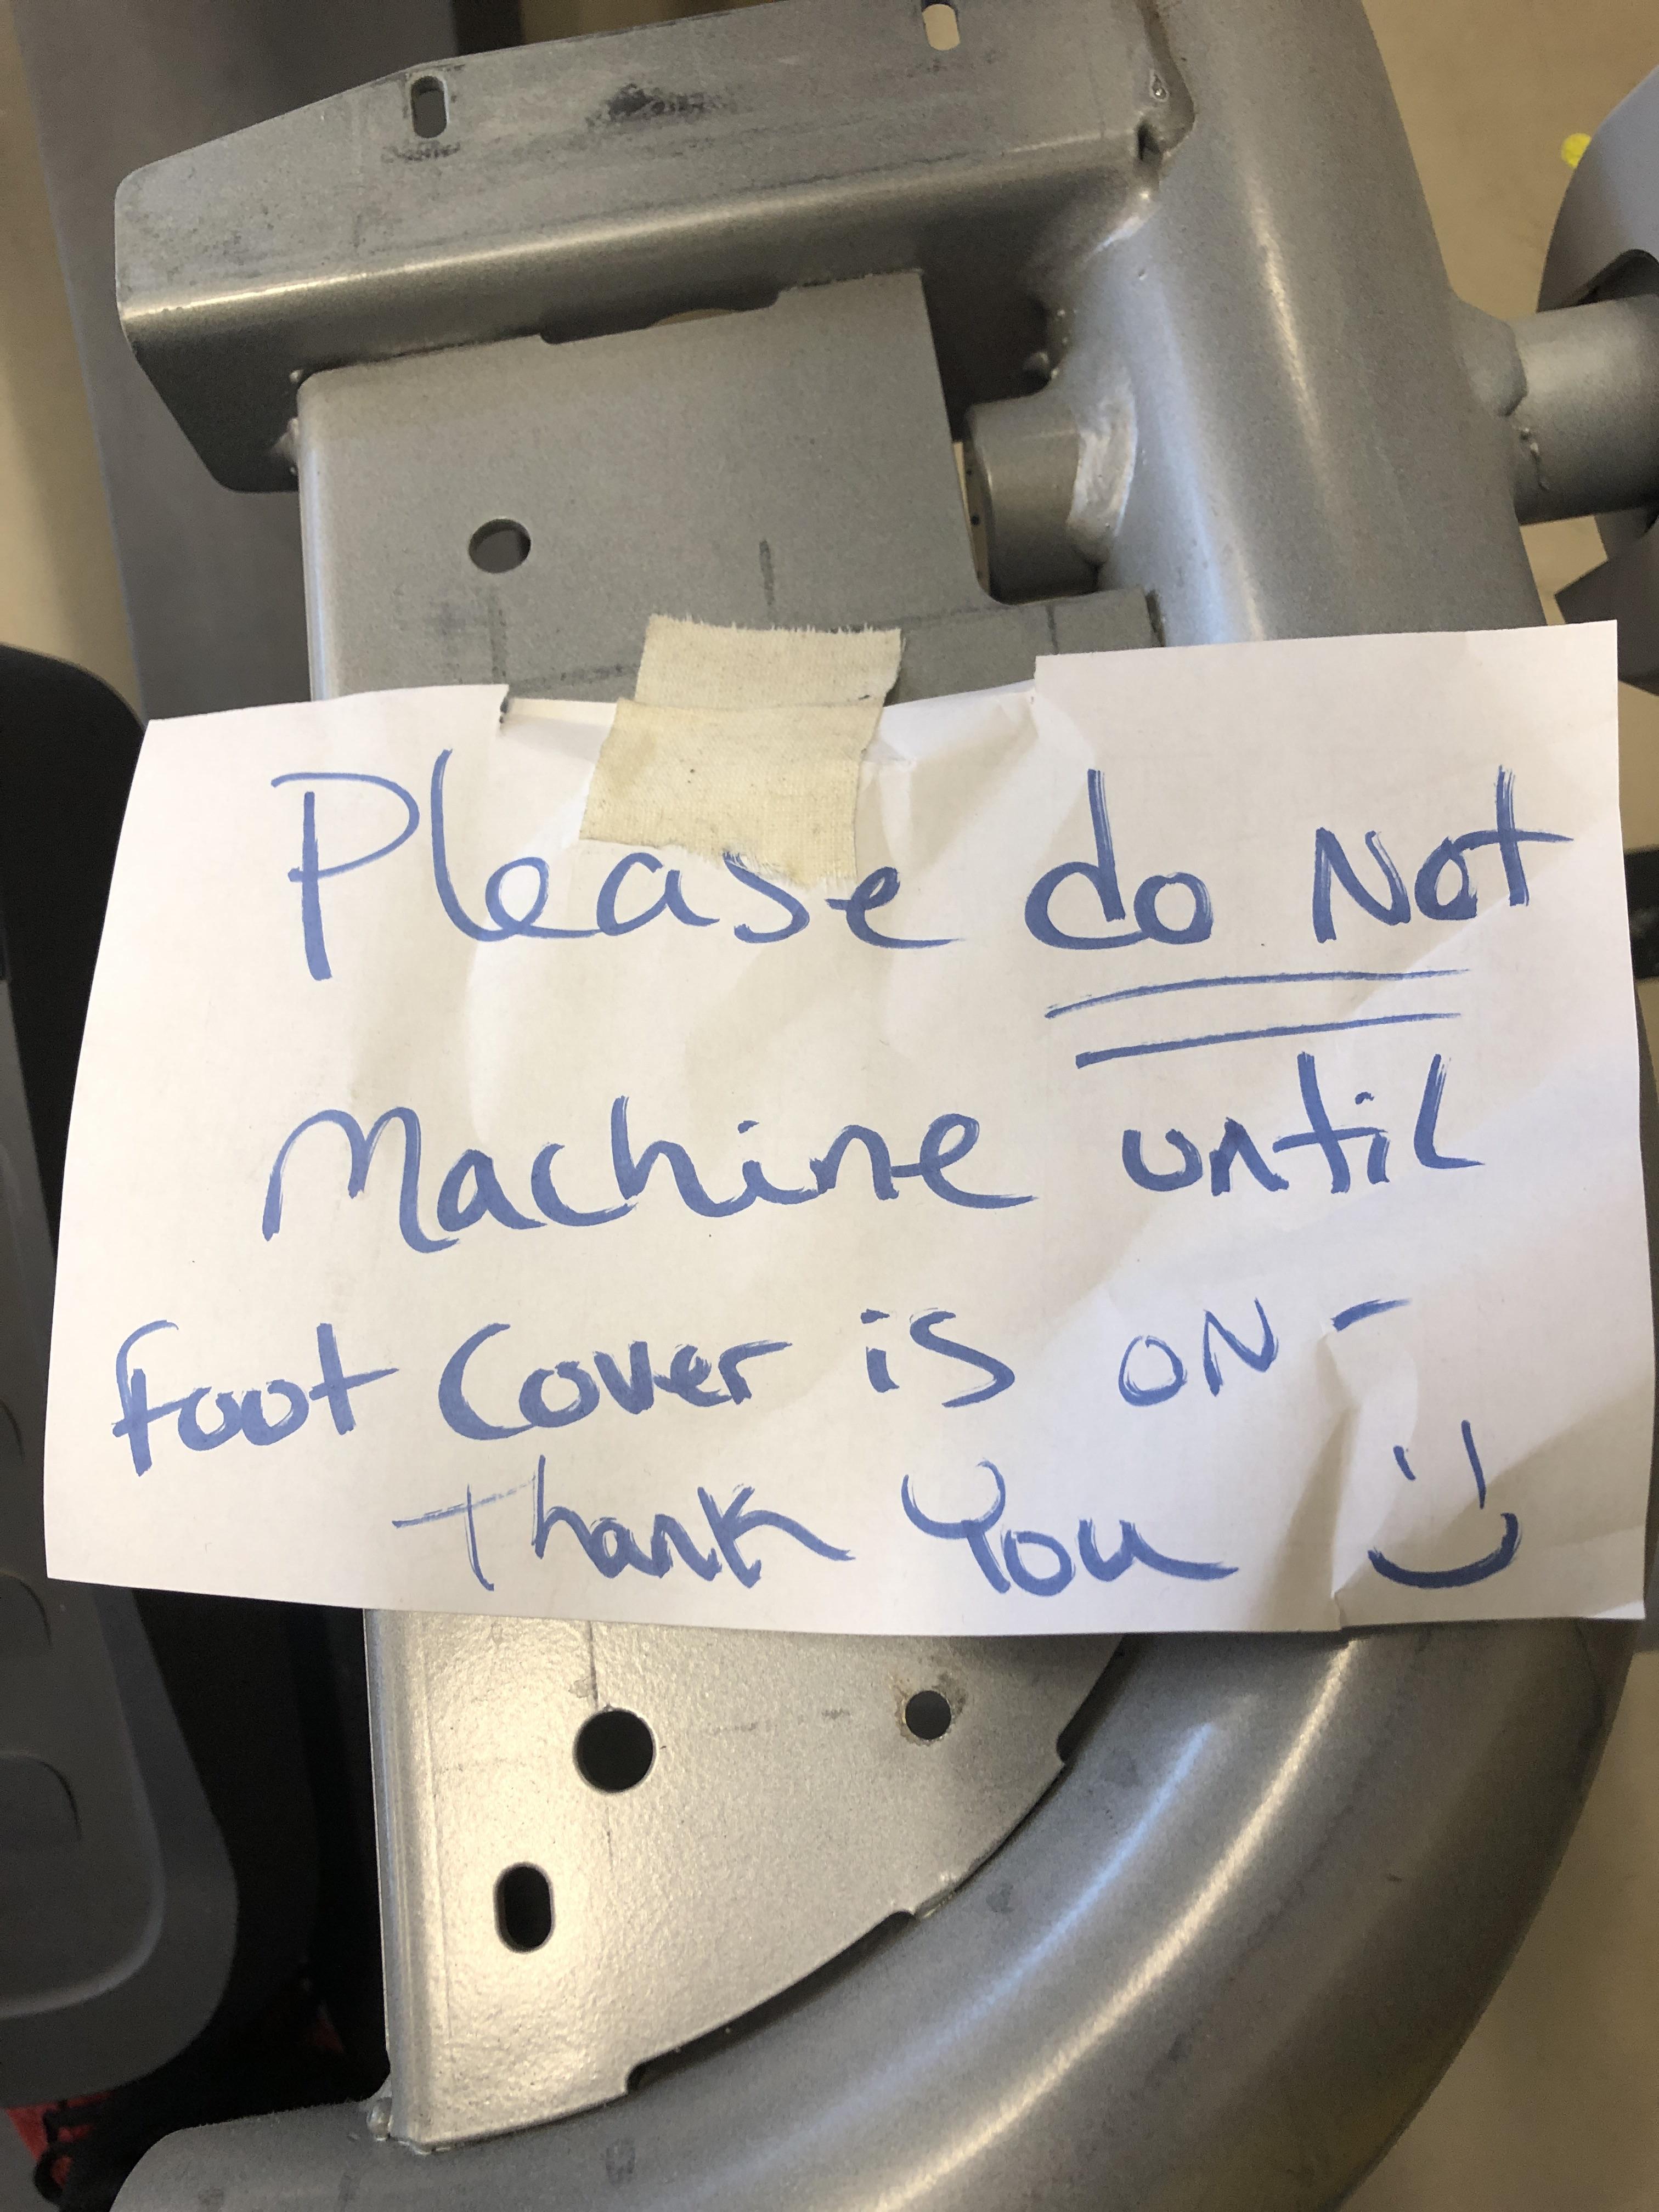 Please do Not
Machine until
foot Cover is ON -
Thank You :)